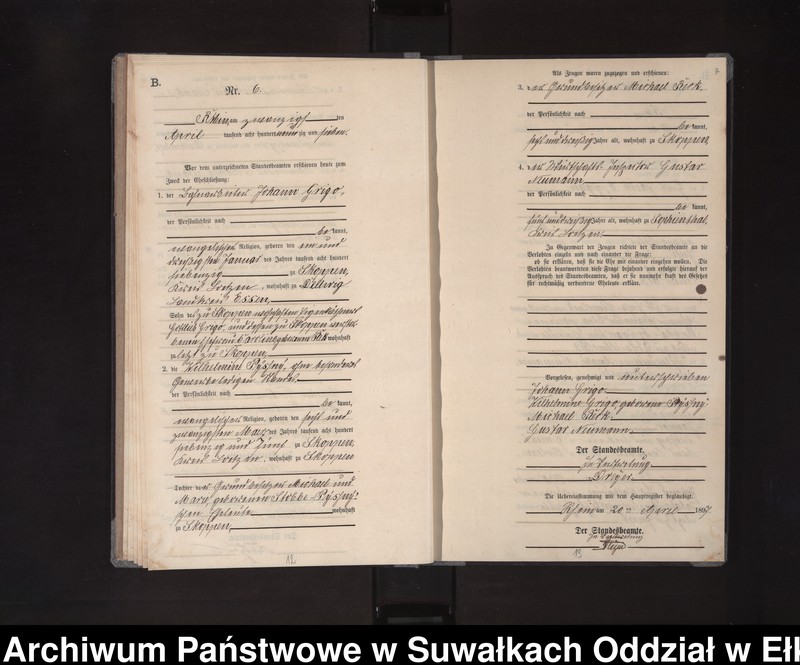 B.
Nr. 6.
Rhein, am zwanzigsten
April tausend acht hundert neunzig und sieben.
Vor dem unterzeichneten Standesbeamten erschienen heute zum
Zweck der Eheschließung:
1. der Johann Grigo,
der Persönlichkeit nach
be kannt,
evangelischer Religion, geboren den ein und
dreißigsten Januar des Jahres tausend acht hundert
siebenzig zu Skoppen,
Kreis Loetzen, wohnhaft zu Dellwig
Landkreis Essen,
Sohn des zu Skoppen
Gottlieb Grigo, und dessen zu Skoppen
geborenen Rick wohnhaft
zuletzt zu Skoppen
2. die Wilhelmine Pyssny, ohne besonderes
der Persönlichkeit nach
be kannt,
evangelischer Religion, geboren den sechs und
zwanzigsten März des Jahres tausend acht hundert
siebenzig und fünf zu Skoppen,
Kreis Loetzen, wohnhaft zu Skoppen
Tochter der Grundbesitzer Michael und
Marie, geborenen Pyssny-
schen Eheleute wohnhaft
zu Skoppen
12
Als Zeugen waren zugezogen und erschienen:
3. der Grundbesitzer Michael Rick
der Persönlichkeit nach
be kannt,
sechs und dreißig Jahre alt, wohnhaft zu Skoppen,
4. der Wirthschafts-Inspektor Gustav
Neumann
der Persönlichkeit nach
be kannt,
fünf und dreißig Jahre alt, wohnhaft zu Sophienthal,
Kreis Loetzen
In Gegenwart der Zeugen richtete der Standesbeamte an die
Verlobten einzeln und nach einander die Frage:
ob sie erklären, daß sie die Ehe mit einander eingehen wollen. Die
Verlobten beantworteten diese Frage bejahend und erfolgte hierauf der
Ausspruch des Standesbeamten, daß er sie nunmehr kraft des Gesetzes
für rechtmäßig verbundene Eheleute erkläre.
Vorgelesen, genehmigt und unterschrieben
Johann Grigo
Wilhelmine Grigo geborene Pyssny
Michael Rick
Gustav Neumann
Der Standesbeamte.
In Vertretung
Die Uebereinstimmung mit dem Hauptregister beglaubigt.
Rhein am 20ten April 1897
Der Standesbeamte.
In Vertretung
13
Archiwum Państwowe w Suwałkach Oddział w Ełk